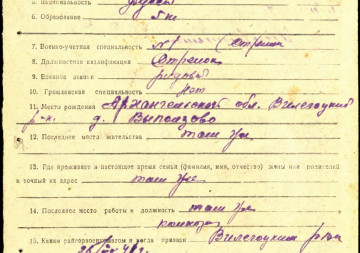 5. Национальность русский
6. Образование 5 кл
7. Военно-учетная специальность №1 (стрелки
8. Должностная квалификация Стрелок
9. Военное звание рядовой
10. Гражданская специальность Нет
11. Место рождения Архангельской обл. Вилегодский
р-н. д. Выползово
12. Последнее место жительства там же
13. Где проживает в настоящее время семья (фамилия, имя, отчество) жены или родителей
и точный их адрес там же
14. Последнее место работы и должность там же
колхоз
15. Каким райгорвоенкоматом и когда призван Вилегодским